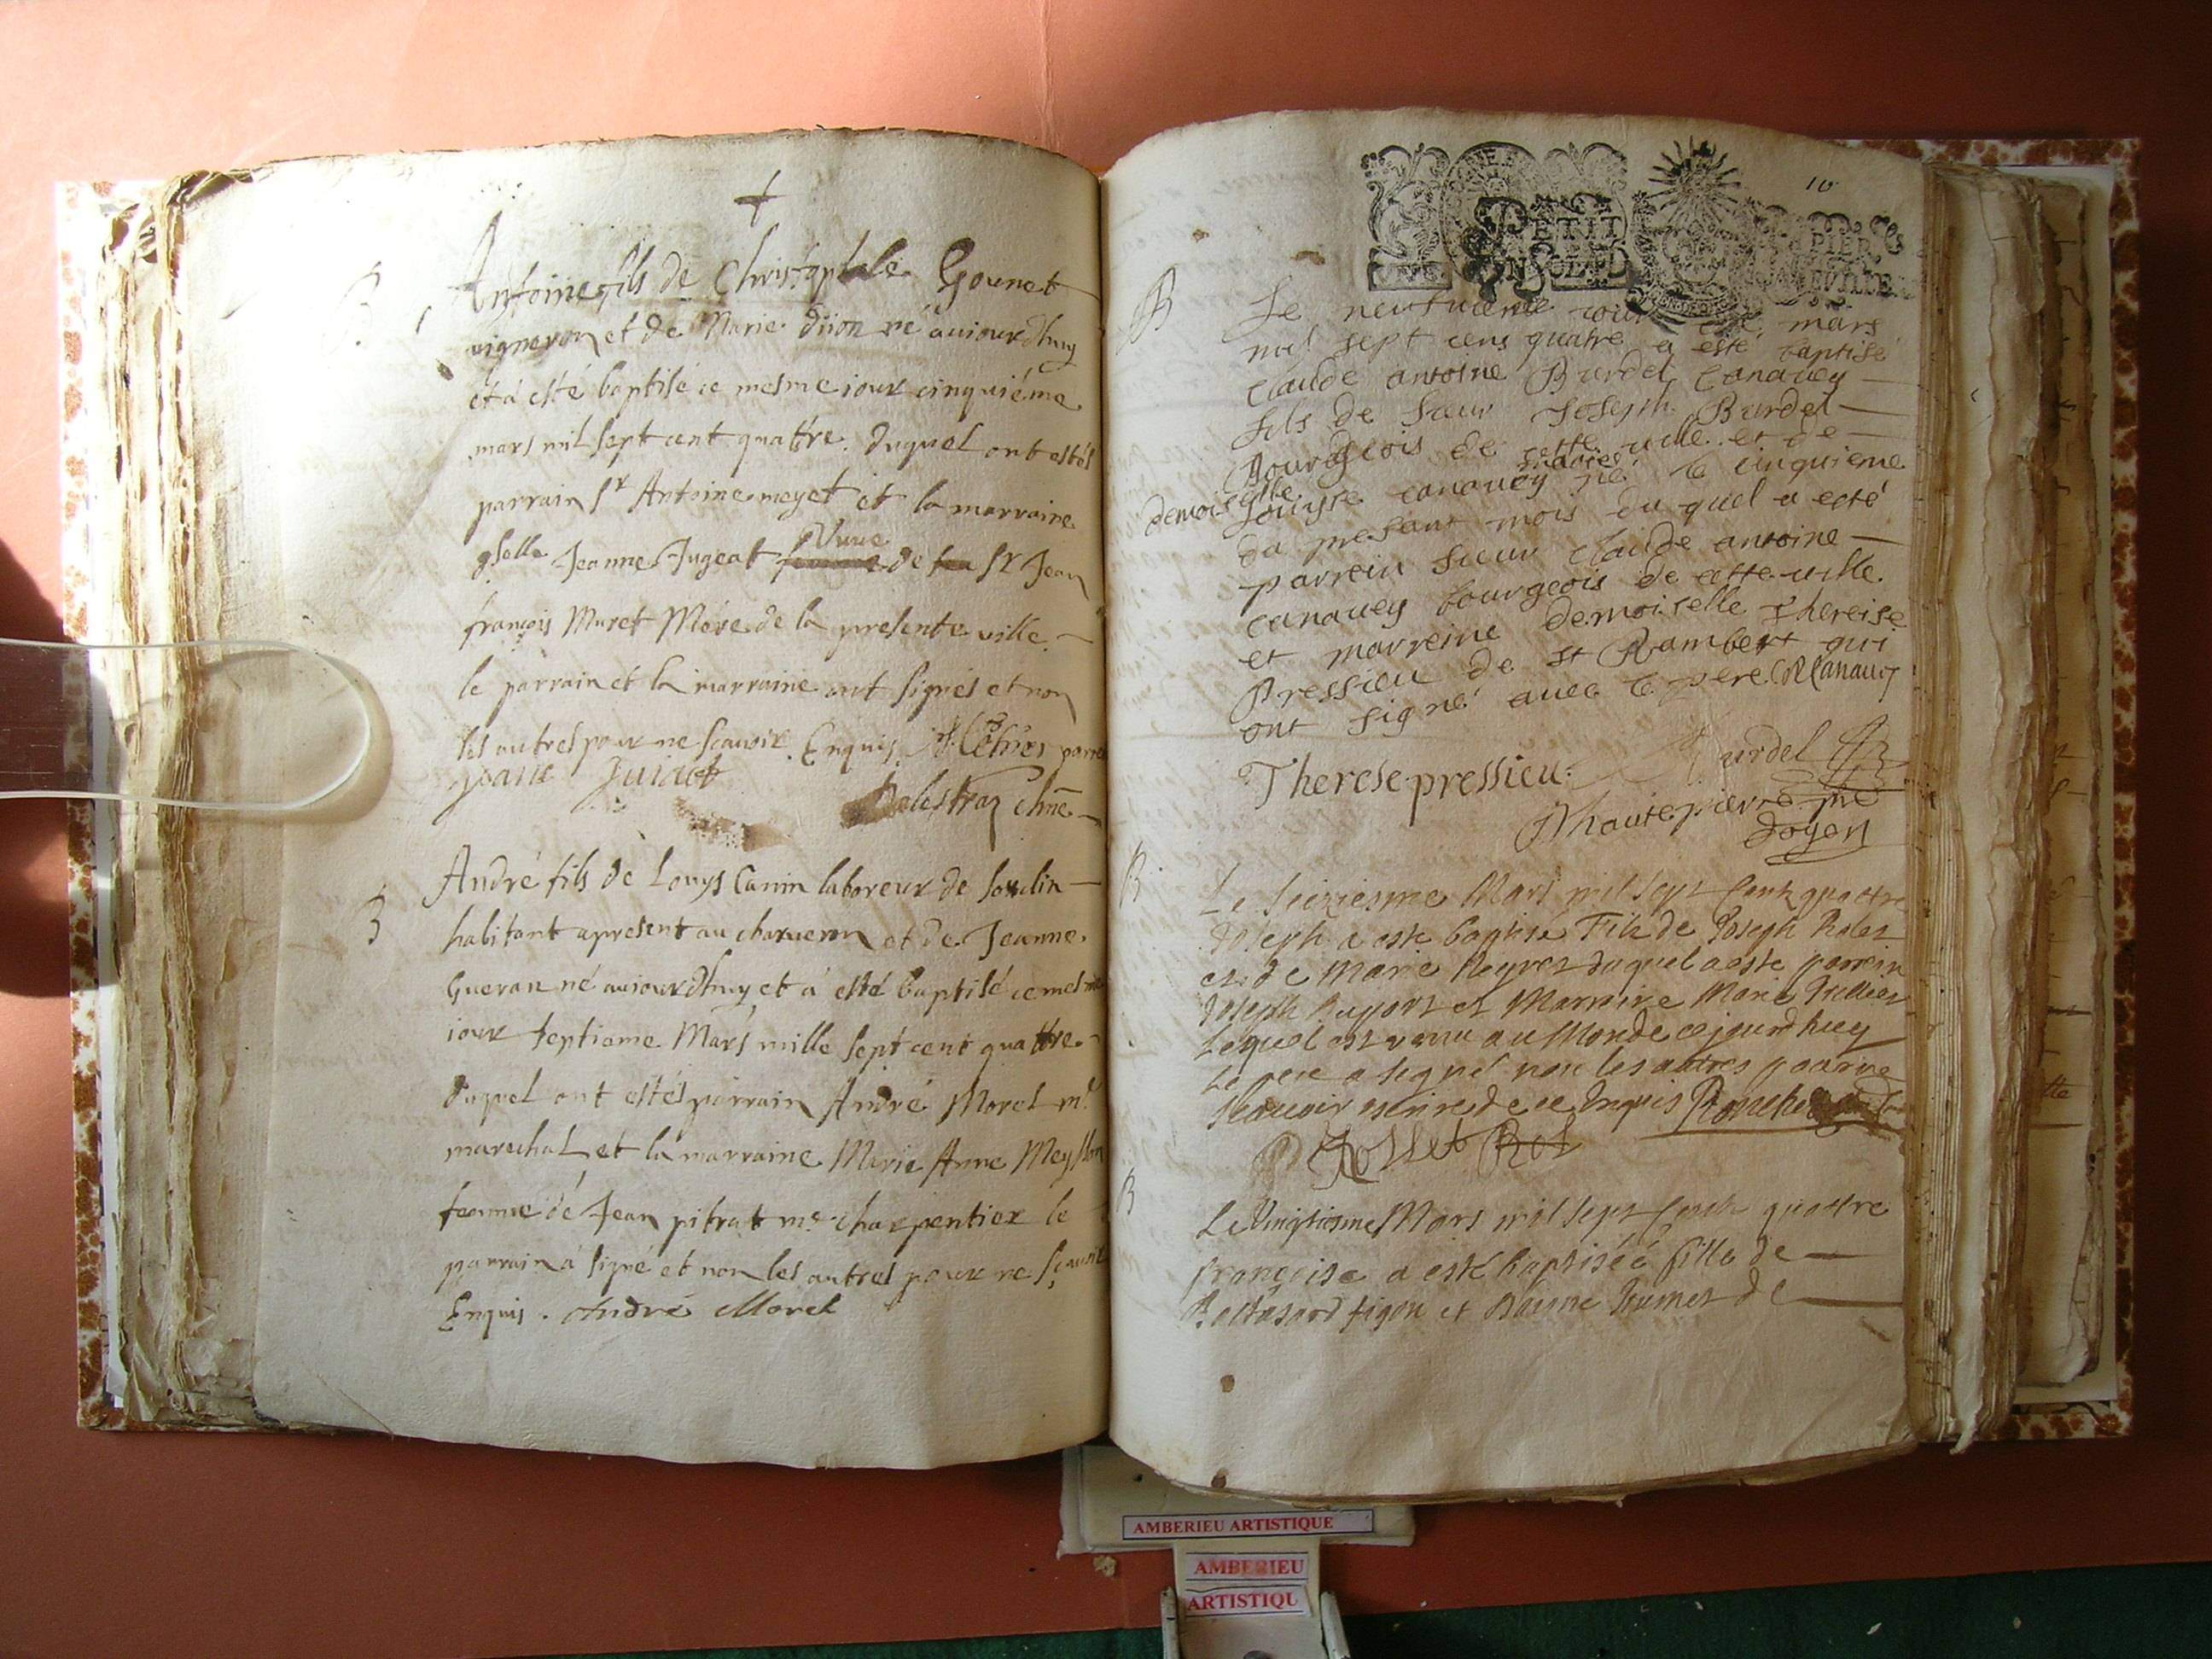 Antoine fils de Christophle Gounet
vigneron et de Marie dijon né aujourdhuy
et á esté baptisé ce mesme iour cinquiéme
mars mil sept cent quattre. duquel ont estés
parrain Sr Antoine meyet et la marraine
Jeanne Jugeat Vuue de Sr Jean
françois Muret Mére de la presente ville.
le parrain et la marraine ont signés et non
les autres pour ne scavoir. Enquis.
B
André fils de Louys Canin laboreur de
habitant apresent au et de Jeanne
Gueran né aujourdhuy et á esté baptisé ce mesme
iour septiéme Mars mille sept cent quattre
duquel ont estés parrain André Morel me
marechal et la marraine Marie Anne
femme de Jean pitrat me charpentier le
parrain á signé et non les autres pour ne sçavoir
Enquis. André Morel
10
PETIT PAPIER
B
Le neufvieme iour de mars
mil sept cens quatre a esté baptisé
Claude antoine Burdel Canauey
fils de sieur Joseph Burdel
Bourgeois de cette ville et de
demoiselle Louyse canauey né le cinquieme
du present mois du quel a esté
parrein sieur claude antoine
canauey bourgeois de cette ville
et marreine demoiselle Thereise
Pressieu de st Rambert qui
ont signé avec le pere
Therese pressieu. Burdel
Dhautepierre
doyen
B
Le seiziesme Mars mil sept Cent quattre
Joseph a este baptisé Fils de Joseph
et de Marie duquel a este parrein
Joseph et Marraine Marie
Lequel est venu au Monde cejourdhuey
Le pere a signé non les autres pour ne
scauoir escrire de ce Enquis
B
Le Vingtiesme Mars mil sept Cent quattre
françoise a este baptiséé fille de
Baltasard et de
AMBERIEU ARTISTIQUE
AMBERIEU
ARTISTIQU